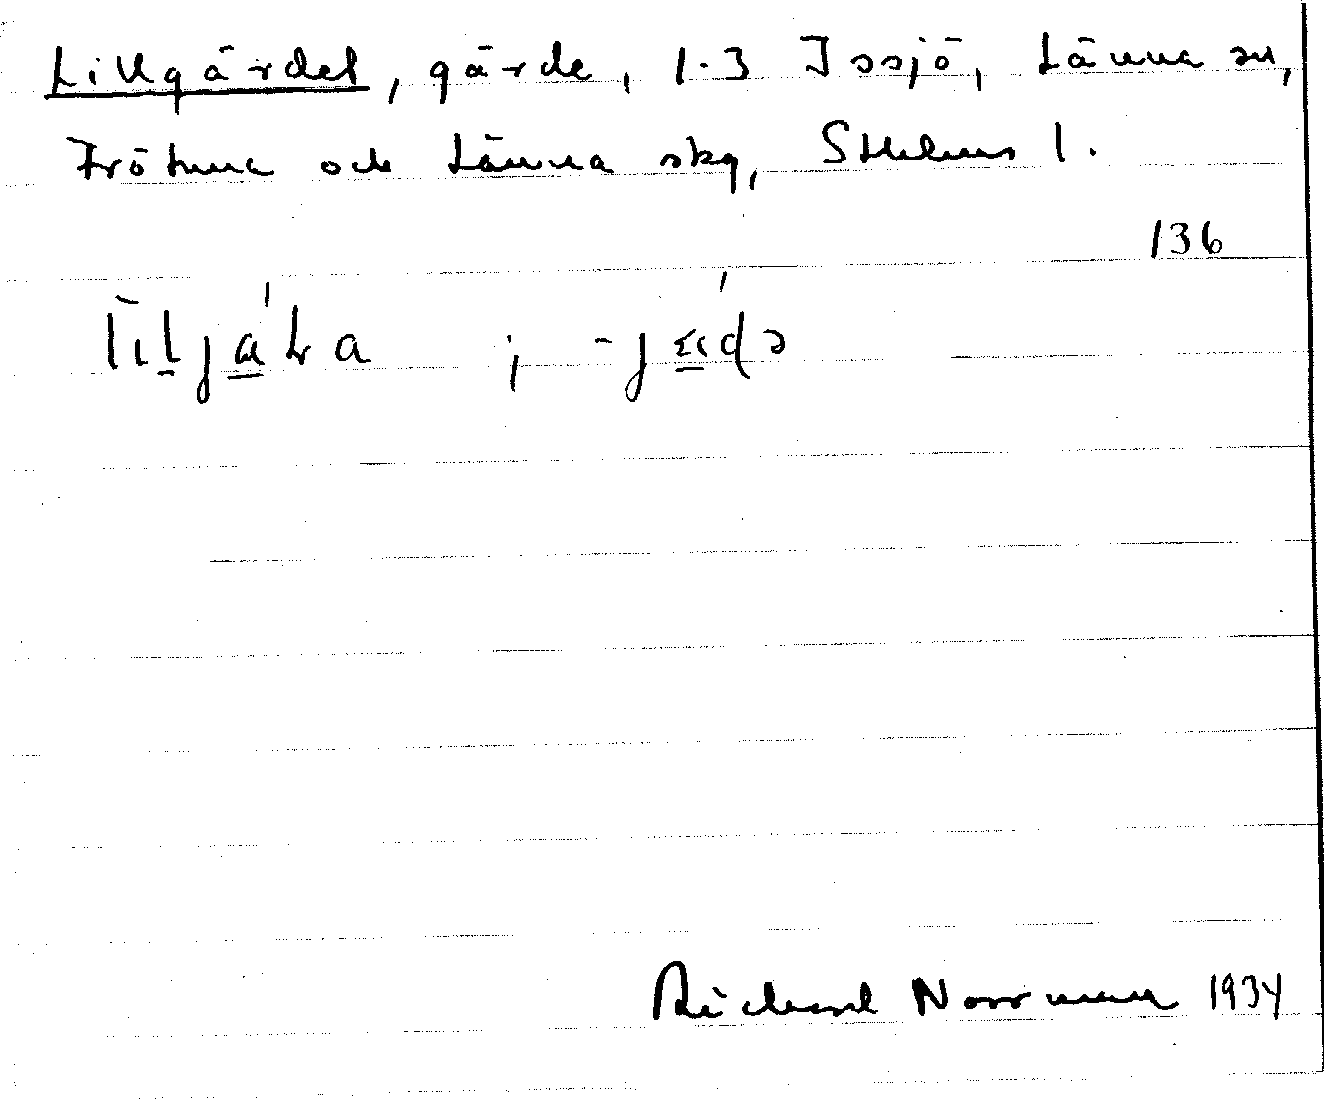 Lillgärdet, gärde, 1-3 Issjö, Länna sn,
Frötuna och Länna skg, Sthlms l.
136
Richard Norrman 1934